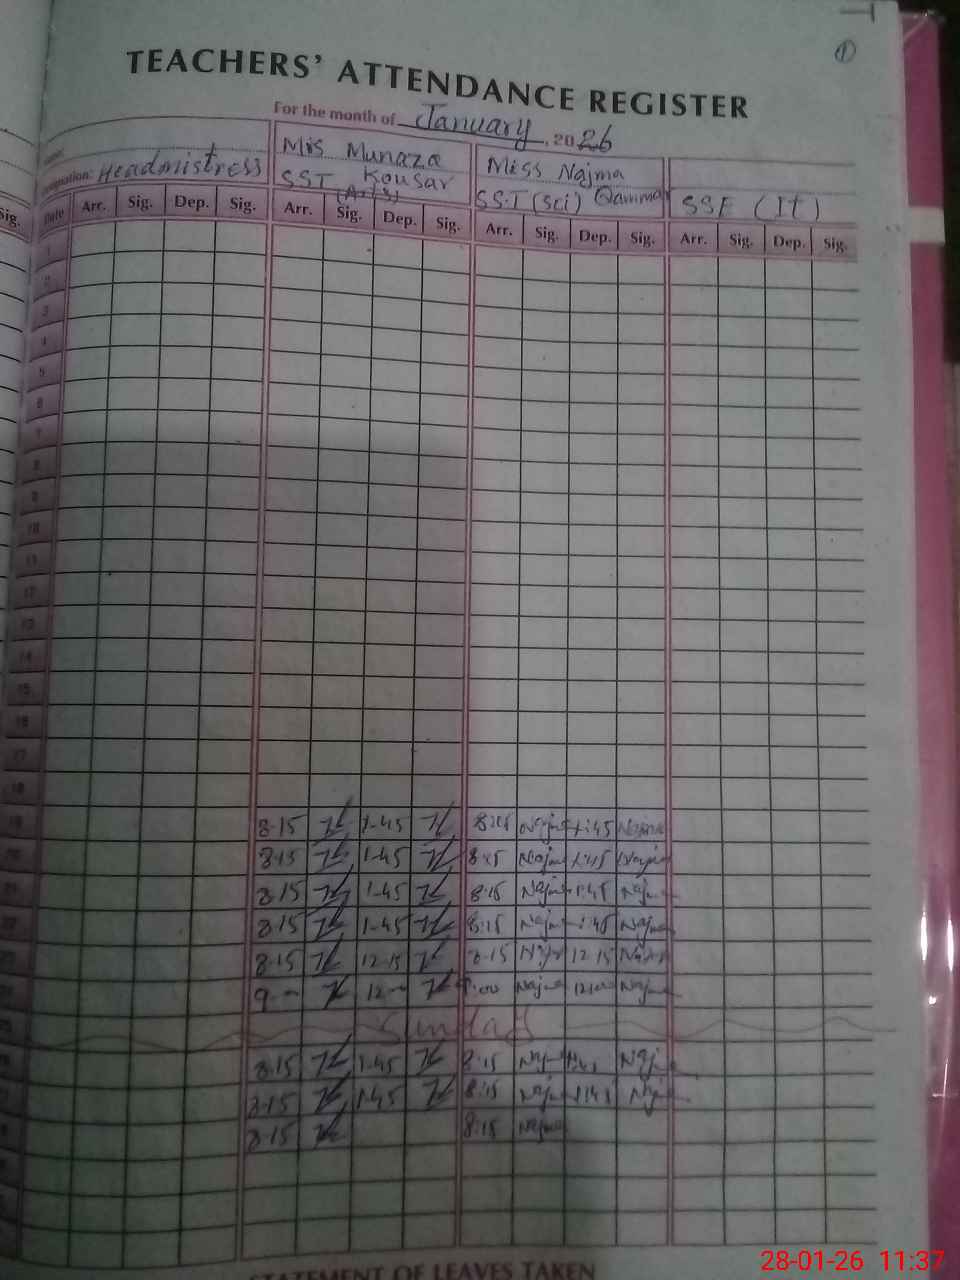 ①
TEACHERS' ATTENDANCE REGISTER
For the month of January, 2026
Designation: Headmistress
Mis Munaza Kousar
SST (Arts)
Miss Najma
SST (Sci) Qammar
SSE (It)
Sig. Date Arr. Sig. Dep. Sig. Arr. Sig. Dep. Sig. Arr. Sig. Dep. Sig. Arr. Sig. Dep. Sig.
1
2
3
4
5
6
7
8
9
10
11
12
13
14
15
16
17
18
19 8-15 1-45 8:15 Najma 1:45 Najma
20 8-15 1-45 8:15 Najma 1:45 Najma
21 8-15 1-45 8:15 Najma 1:45 Najma
22 8-15 1-45 8:15 Najma 1:45 Najma
23 8-15 12-15 8-15 Najma 12-15 Najma
9-- 12-- 9:00 Najma 12:00 Najma
Sunday
8-15 1-45 8:15 Najma 1:45 Najma
8-15 1-45 8:15 Najma 1:45 Najma
8-15 8:15 Najma
STATEMENT OF LEAVES TAKEN
28-01-26 11:37